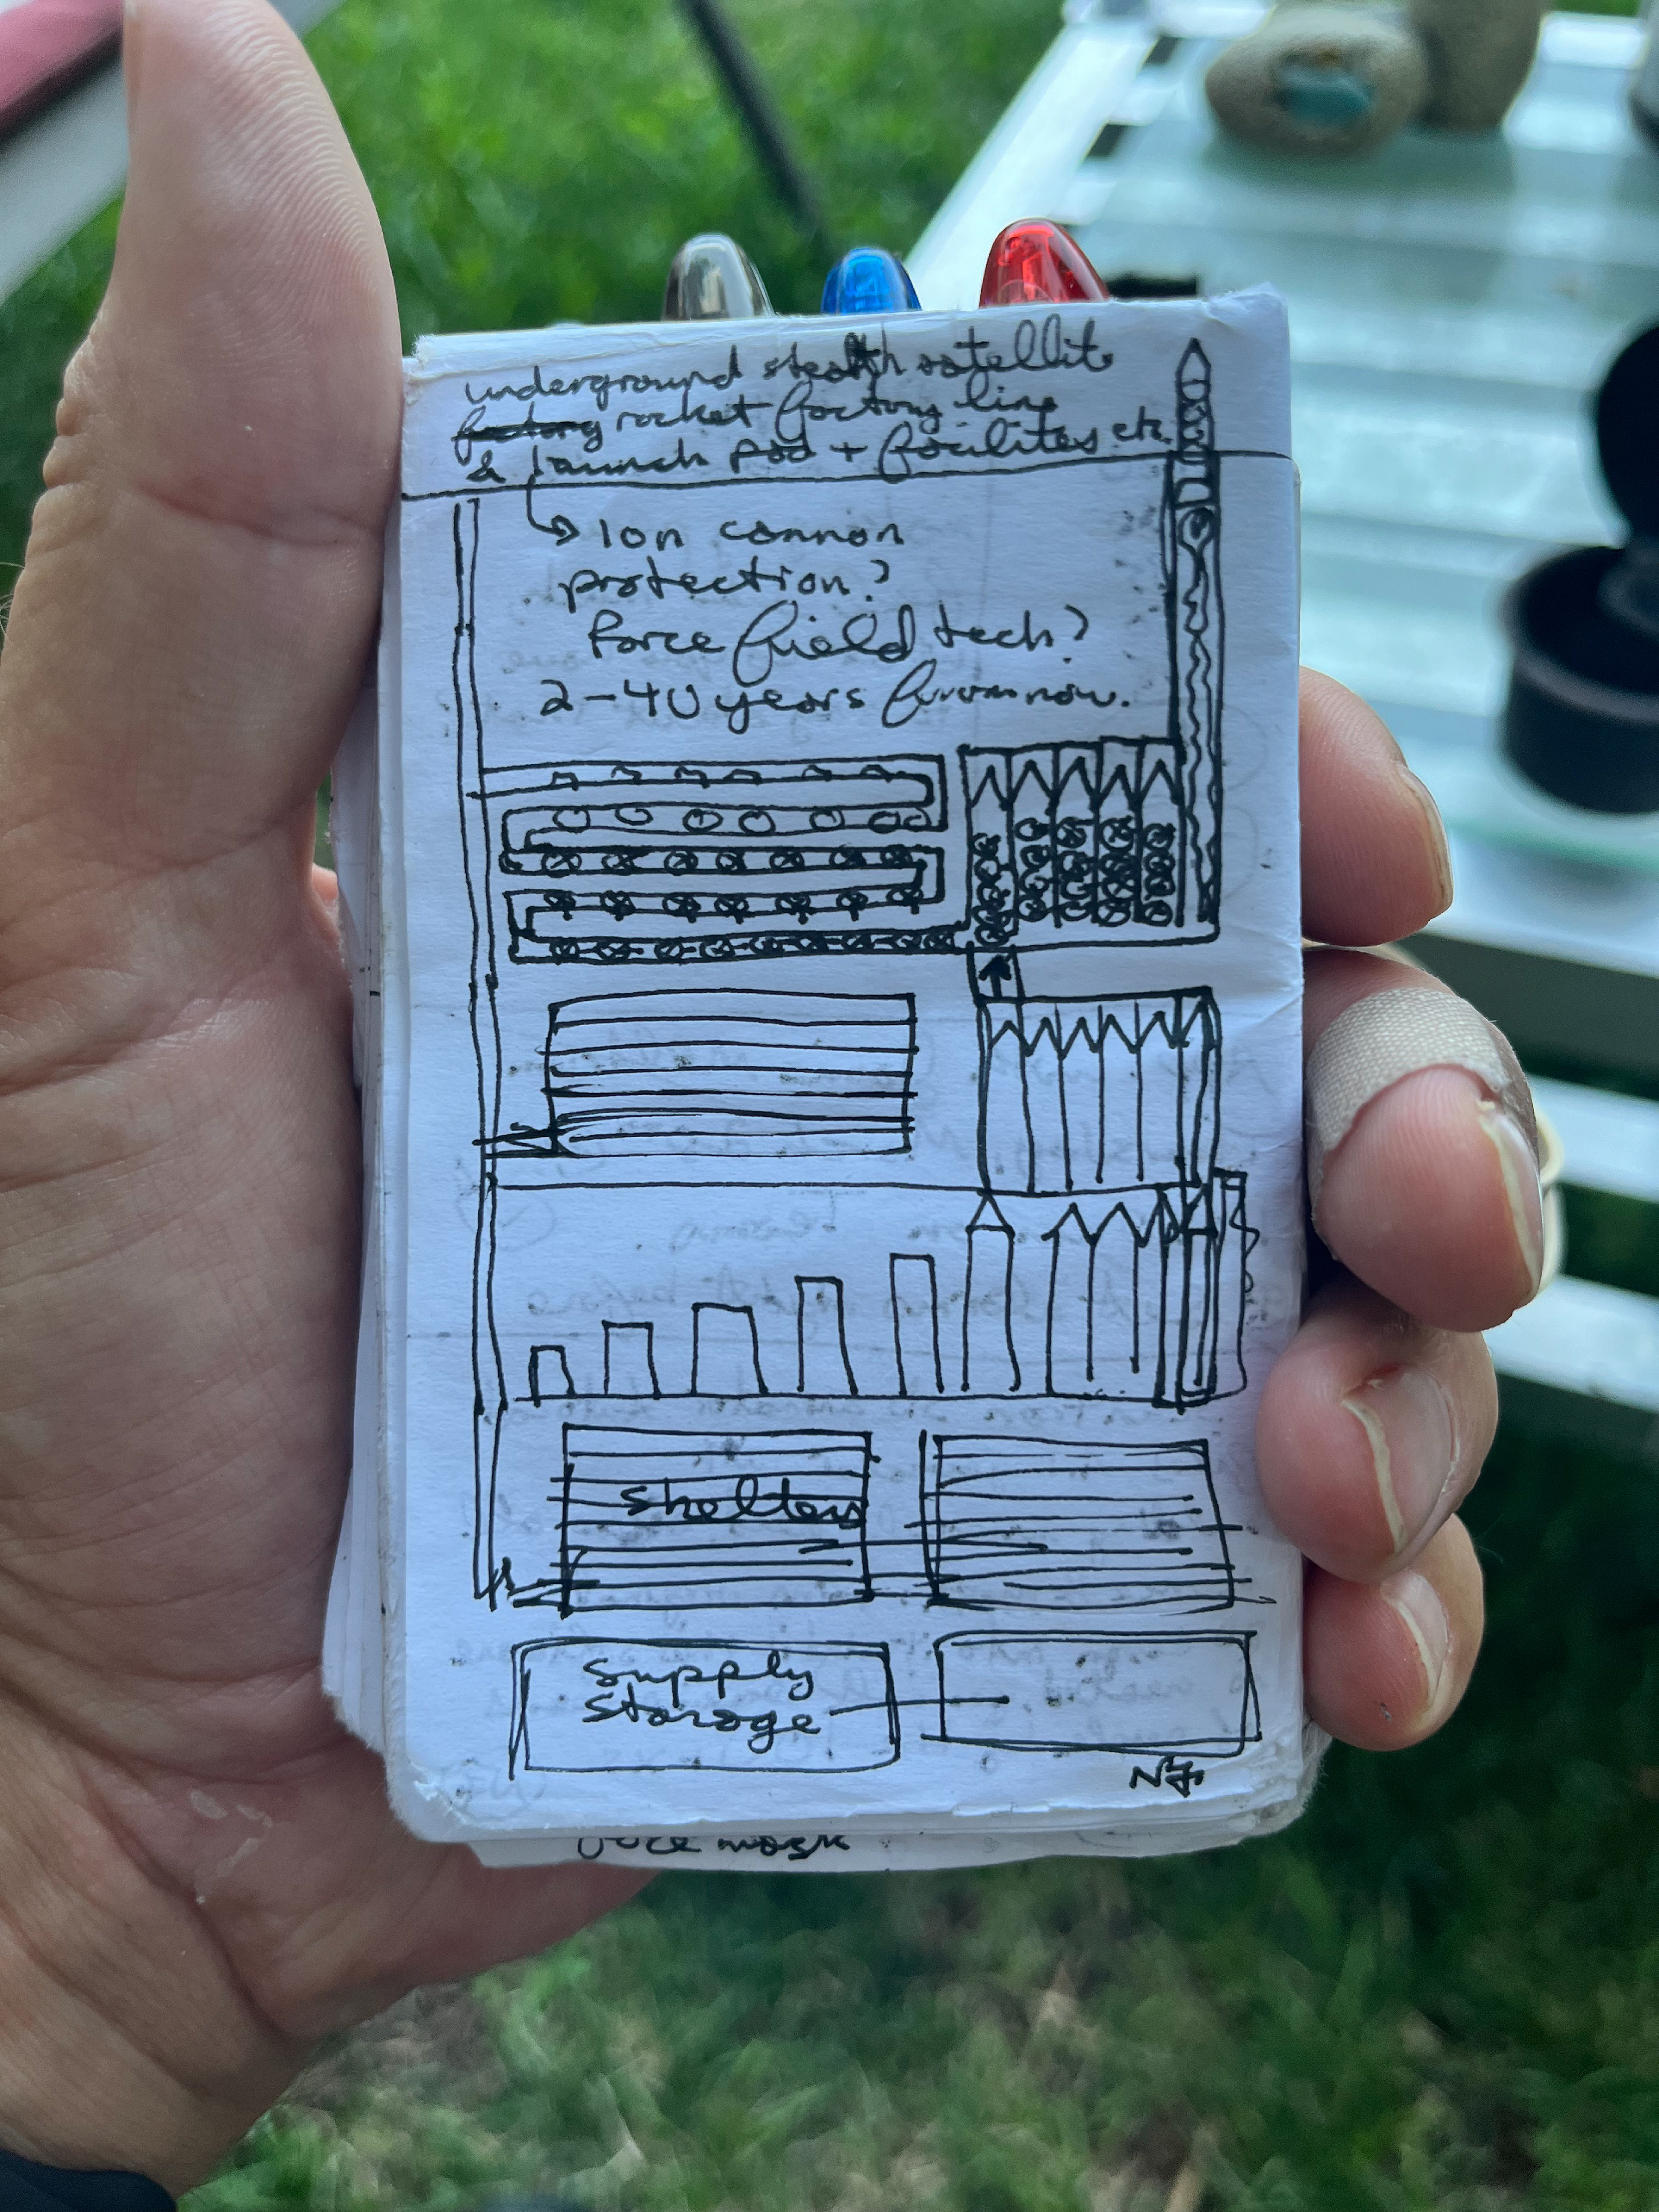 underground stealth satellite
factory rocket factory line
& launch pad + facilites etc.
Ion cannon
protection?
Force field tech?
2-40 years from now.
Shelters
Supply
Storage
NF.
mask